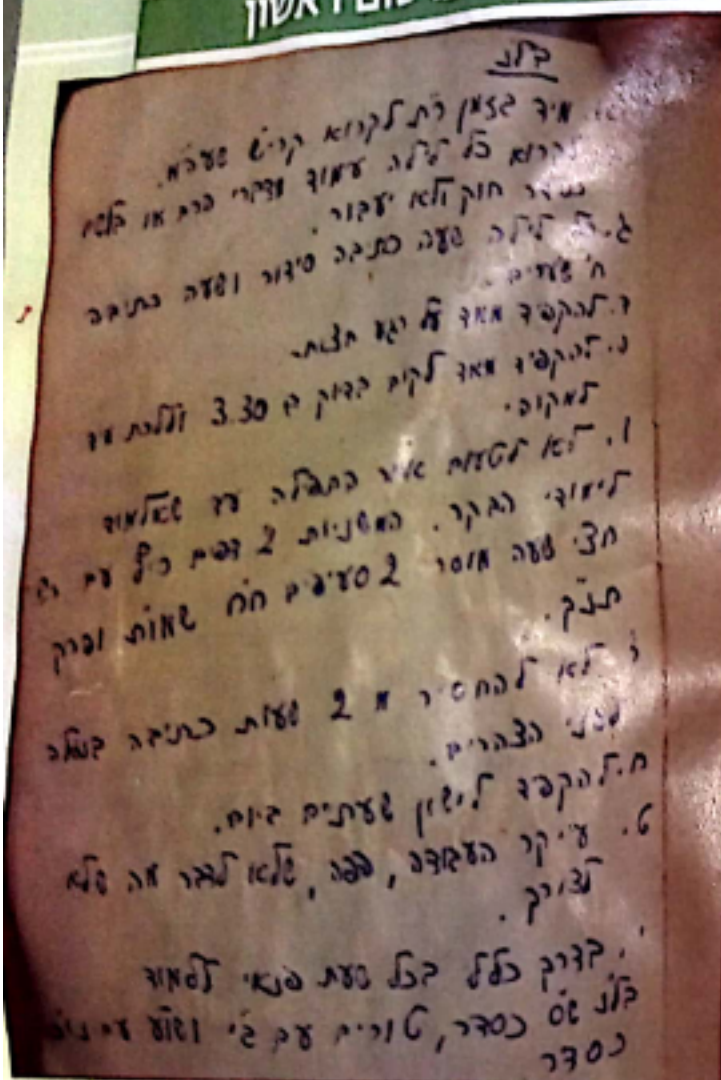 בלנ
מיד בזמן ר״ת לקרוא קריש שעה״מ.
לקרוא כל לילה עמוד מדברי הרב או בלשם
כסדר חוק ולא יעבור.
ג. כל לילה שעה כתיבה סידור ושעה כתיבה
ח' שערים.
ד. להקפיד מאד על רגע חצות.
ה. להקפיד מאד לקום בדיוק ב 3.30 וללכת מיד
למקוה.
ו. לא לטעום אחר התפלה עד שאלמוד
לימודי הבקר. המשניות 2 דפים רי״ף עם
חצי שעה מוסר 2 סעיפים חו״מ שמות ופרק
תנ״ך.
ז לא להחסיר מ 2 שעות כתיבה בגולה
לפני הצהרים.
ח. להקפיד לישון שעתים ביום.
ט. עיקר העבודה, הפה, שלא לדבר מה שלא
לצורך.
י. בדרך כלל בכל שעת פנאי ללמוד
בלנ ש״ס כסדר, טורים עם ב״י ושו״ע עם
כסדר